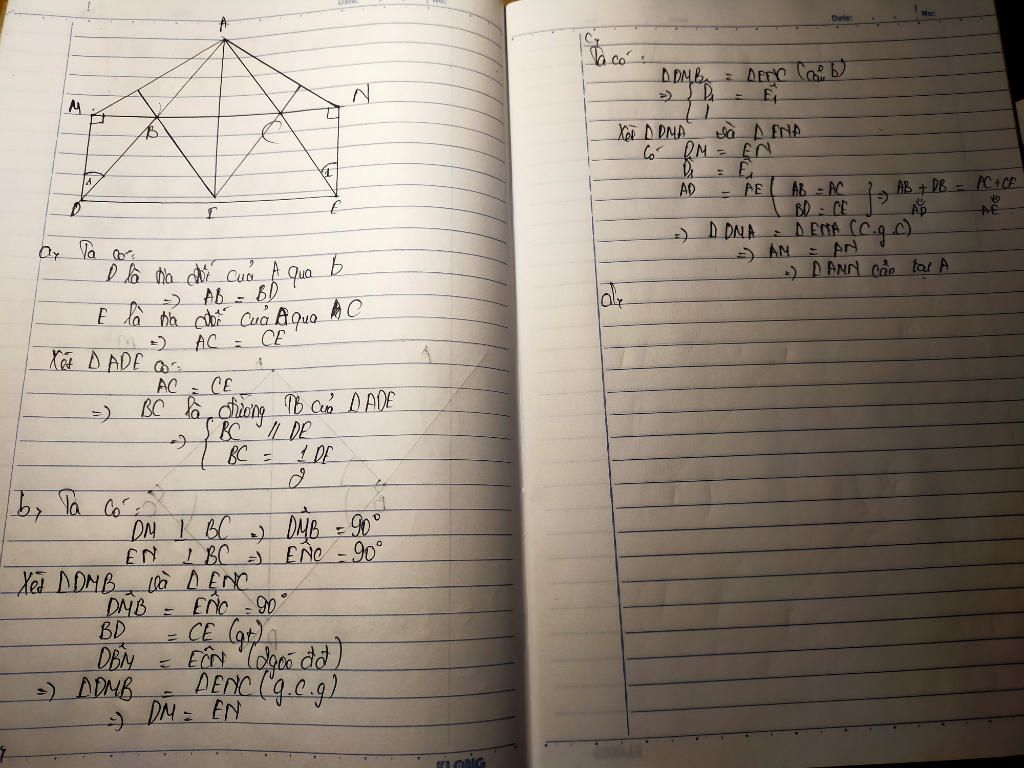 Date: No:
A
M
N
B
C
1
1
D
F
E
a, Ta có:
D là tia đối của A qua b
=> AB = BD
E là tia đối của A qua C
=> AC = CE
Xét Δ ADE có:
AC = CE
=> BC là đường TB của Δ ADE
=> { BC // DE
BC = 1/2 DE
b, Ta có:
DM ⊥ BC => DM̂B = 90°
EN ⊥ BC => EN̂C = 90°
Xét Δ DMB và Δ ENC
DM̂B = EN̂C = 90°
BD = CE (gt)
DB̂M = EĈN (đ đ)
=> Δ DMB = Δ ENC (g.c.g)
=> DM = EN
KLONG
Date: No:
c,
Ta có:
Δ DMB = Δ ENC (câu b)
=> { D̂1 = Ê1
Xét Δ DMA và Δ ENA
Có DM = EN
D̂1 = Ê1
AD = AE ( AB = AC
BD = CE ] => AB + DB = AC + CE
AD AE
=> Δ DMA = Δ ENA (c.g.c)
=> AM = AN
=> Δ AMN cân tại A
d,